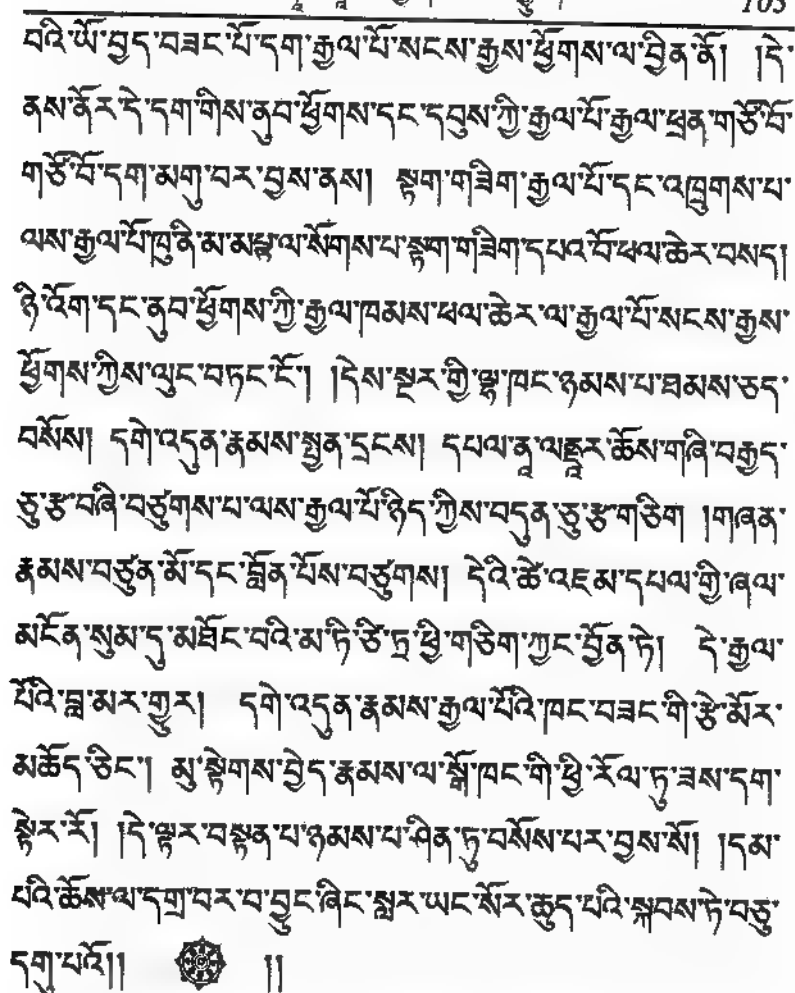 པའི་ཡོ་བྱད་བཟང་པོ་དག་རྒྱལ་པོ་སངས་རྒྱས་ཕྱོགས་ལ་བྱིན་ནོ། །དེ་
ནས་ནོར་དེ་དག་གིས་ནུབ་ཕྱོགས་དང་དབུས་ཀྱི་རྒྱལ་པོ་རྒྱལ་ཕྲན་གཙོ་བོ་
གཙོ་བོ་དག་མགུ་བར་བྱས་ནས། སྟག་གཟིག་རྒྱལ་པོ་དང་འཁྲུགས་པ་
ལས་རྒྱལ་པོ་ཁུ་ནི་མ་མཔྟ་ལ་སོགས་པ་སྟག་གཟིག་དཔའ་བོ་ཕལ་ཆེར་བསད།
ཉི་འོག་དང་ནུབ་ཕྱོགས་ཀྱི་རྒྱལ་ཁམས་ཕལ་ཆེར་ལ་རྒྱལ་པོ་སངས་རྒྱས་
ཕྱོགས་ཀྱིས་ལུང་བཏང་ངོ་། །དེས་སྔར་གྱི་ལྷ་ཁང་ཉམས་པ་ཐམས་ཅད་
བསོས། དགེ་འདུན་རྣམས་སྤྱན་དྲངས། དཔལ་ནཱ་ལནྡྲར་ཆོས་གཞི་བརྒྱད་
ཅུ་རྩ་བཞི་བཙུགས་པ་ལས་རྒྱལ་པོ་ཉིད་ཀྱིས་བདུན་ཅུ་རྩ་གཅིག །གཞན་
རྣམས་བཙུན་མོ་དང་བློན་པོས་བཙུགས། དེའི་ཚེ་འཇམ་དཔལ་གྱི་ཞལ་
མངོན་སུམ་དུ་མཐོང་བའི་མ་ཏི་ཙི་ཏྲ་ཕྱི་གཅིག་ཀྱང་བྱོན་ཏེ། དེ་རྒྱལ་
པོའི་བླ་མར་གྱུར། དགེ་འདུན་རྣམས་རྒྱལ་པོའི་ཁང་བཟང་གི་རྩེ་མོར་
མཆོད་ཅིང་། མུ་སྟེགས་བྱེད་རྣམས་ལ་སྒོ་ཁང་གི་ཕྱི་རོལ་ཏུ་ཟས་དག་
སྟེར་རོ། །དེ་ལྟར་བསྟན་པ་ཉམས་པ་ཤིན་ཏུ་བསོས་པར་བྱས་སོ། །དམ་
པའི་ཆོས་ལ་དགྲ་བར་བ་བྱུང་ཞིང་སླར་ཡང་སོར་ཆུད་པའི་སྐབས་ཏེ་བཅུ་
དགུ་པའོ།། །།